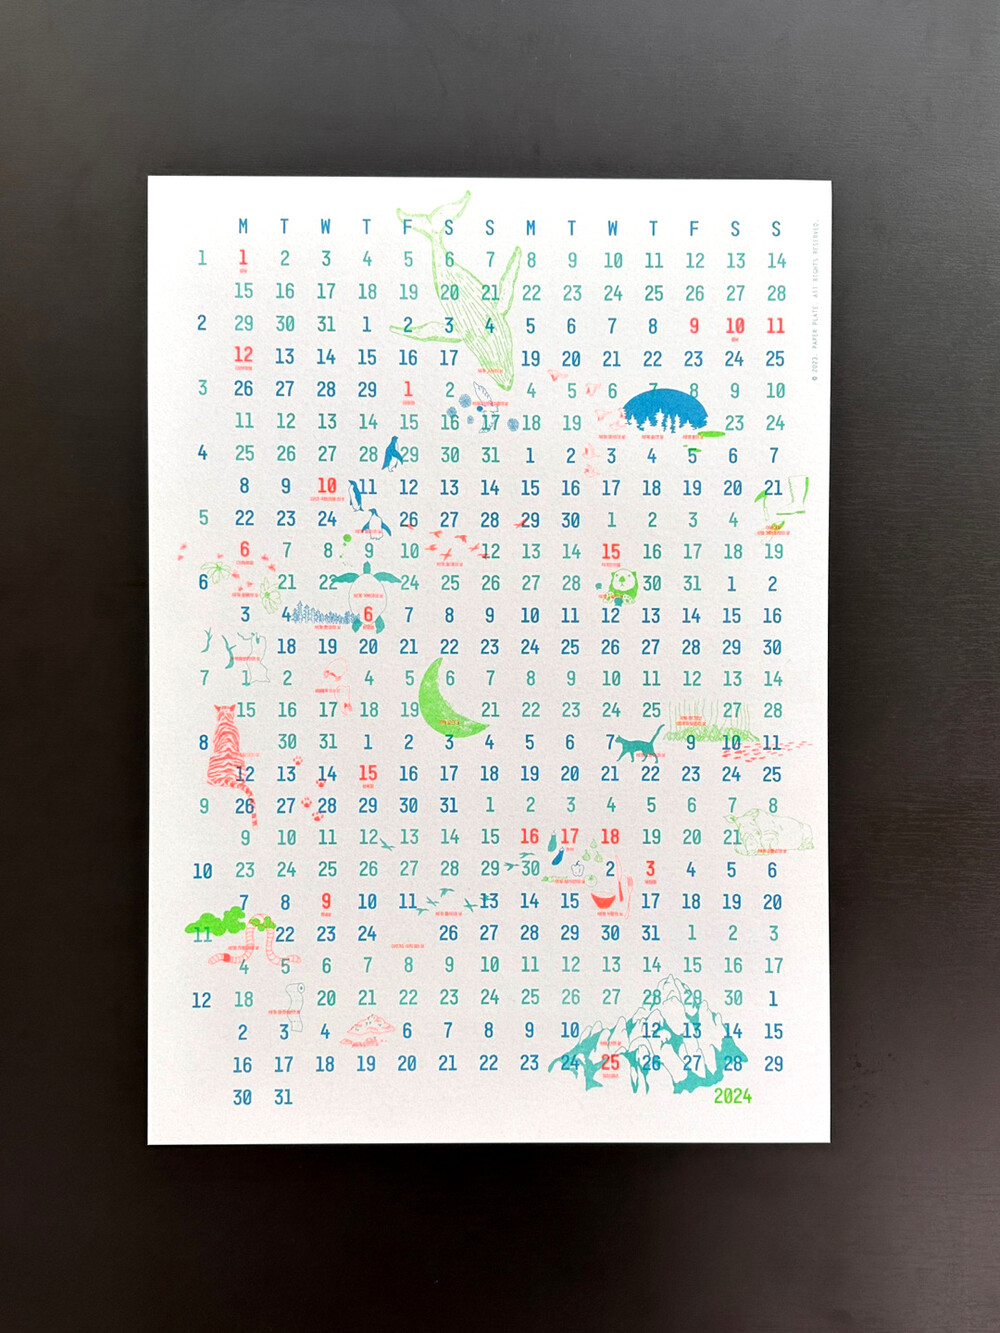 M T W T F S S M T W T F S S
1 1 2 3 4 5 6 7 8 9 10 11 12 13 14
15 16 17 18 19 20 21 22 23 24 25 26 27 28
2 29 30 31 1 2 3 4 5 6 7 8 9 10 11
12 13 14 15 16 17 19 20 21 22 23 24 25
3 26 27 28 29 1 2 4 5 6 7 8 9 10
11 12 13 14 15 16 17 18 19 23 24
4 25 26 27 28 29 30 31 1 2 3 4 5 6 7
8 9 10 11 12 13 14 15 16 17 18 19 20 21
5 22 23 24 26 27 28 29 30 1 2 3 4
6 7 8 9 10 12 13 14 15 16 17 18 19
6 21 22 24 25 26 27 28 30 31 1 2
3 4 6 7 8 9 10 11 12 13 14 15 16
18 19 20 21 22 23 24 25 26 27 28 29 30
7 1 2 4 5 6 7 8 9 10 11 12 13 14
15 16 17 18 19 21 22 23 24 25 27 28
8 30 31 1 2 3 4 5 6 7 9 10 11
12 13 14 15 16 17 18 19 20 21 22 23 24 25
9 26 27 28 29 30 31 1 2 3 4 5 6 7 8
9 10 11 12 13 14 15 16 17 18 19 20 21
10 23 24 25 26 27 28 29 30 2 3 4 5 6
7 8 9 10 11 13 14 15 17 18 19 20
11 22 23 24 26 27 28 29 30 31 1 2 3
4 5 6 7 8 9 10 11 12 13 14 15 16 17
12 18 20 21 22 23 24 25 26 27 28 29 30 1
2 3 4 6 7 8 9 10 12 13 14 15
16 17 18 19 20 21 22 23 24 25 26 27 28 29
30 31
2024
© 2023. PAPER PLATE. All RIGHTS RESERVED.